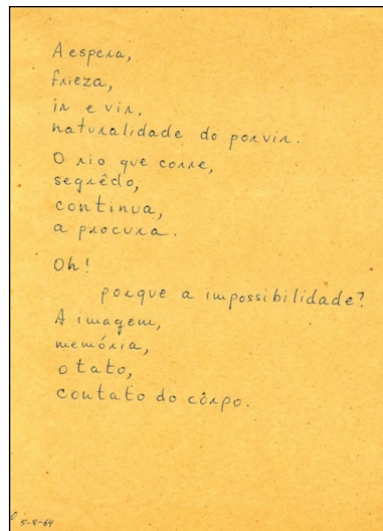 A espera,
frieza,
ir e vir,
naturalidade do porvir.
O rio que corre,
segrêdo,
continua,
a procura.
Oh!
porque a impossibilidade?
A imagem,
memória,
o tato,
contato do côrpo.
5-8-64